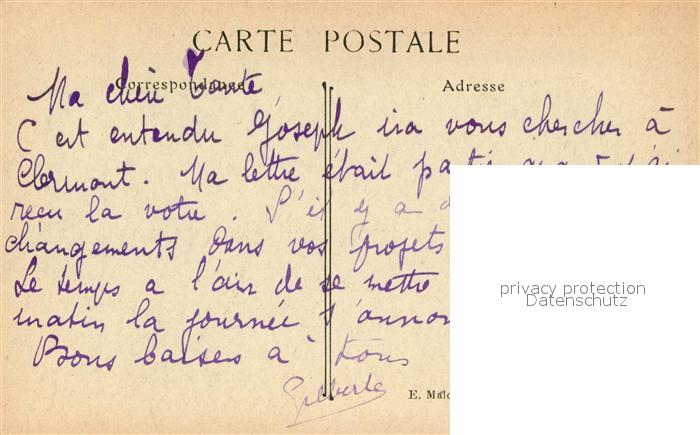 CARTE POSTALE
Correspondance
Adresse
Ma chère tante
C'est entendu Joseph ira vous chercher à
Clermont. Ma lettre était
reçu la votre. S'il y a
changements dans vos projets
Le temps a l'air de se mettre
matin la journée s'annon
Bons baisers à tous
Gilberte
privacy protection
Datenschutz
E. Malc